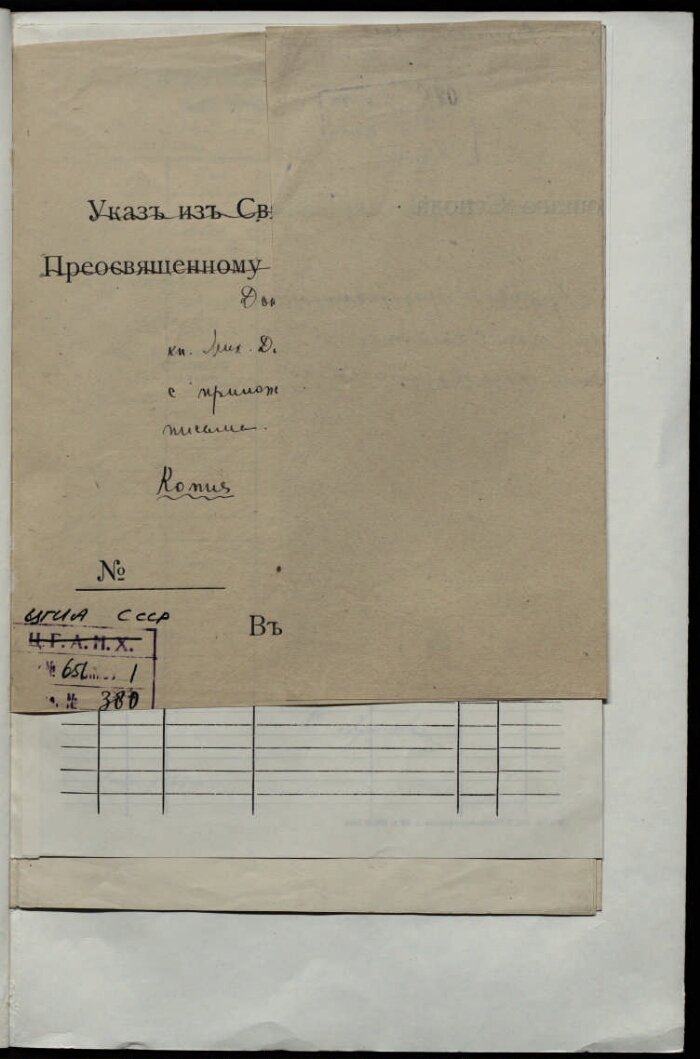 Указъ изъ Св
Преосвященному
До
кн. Д.
с прилож
письма.
Копия
№
ЦГИА СССР
Ц.Г.А.Н.Х.
Въ
№ 656 1
№ 380